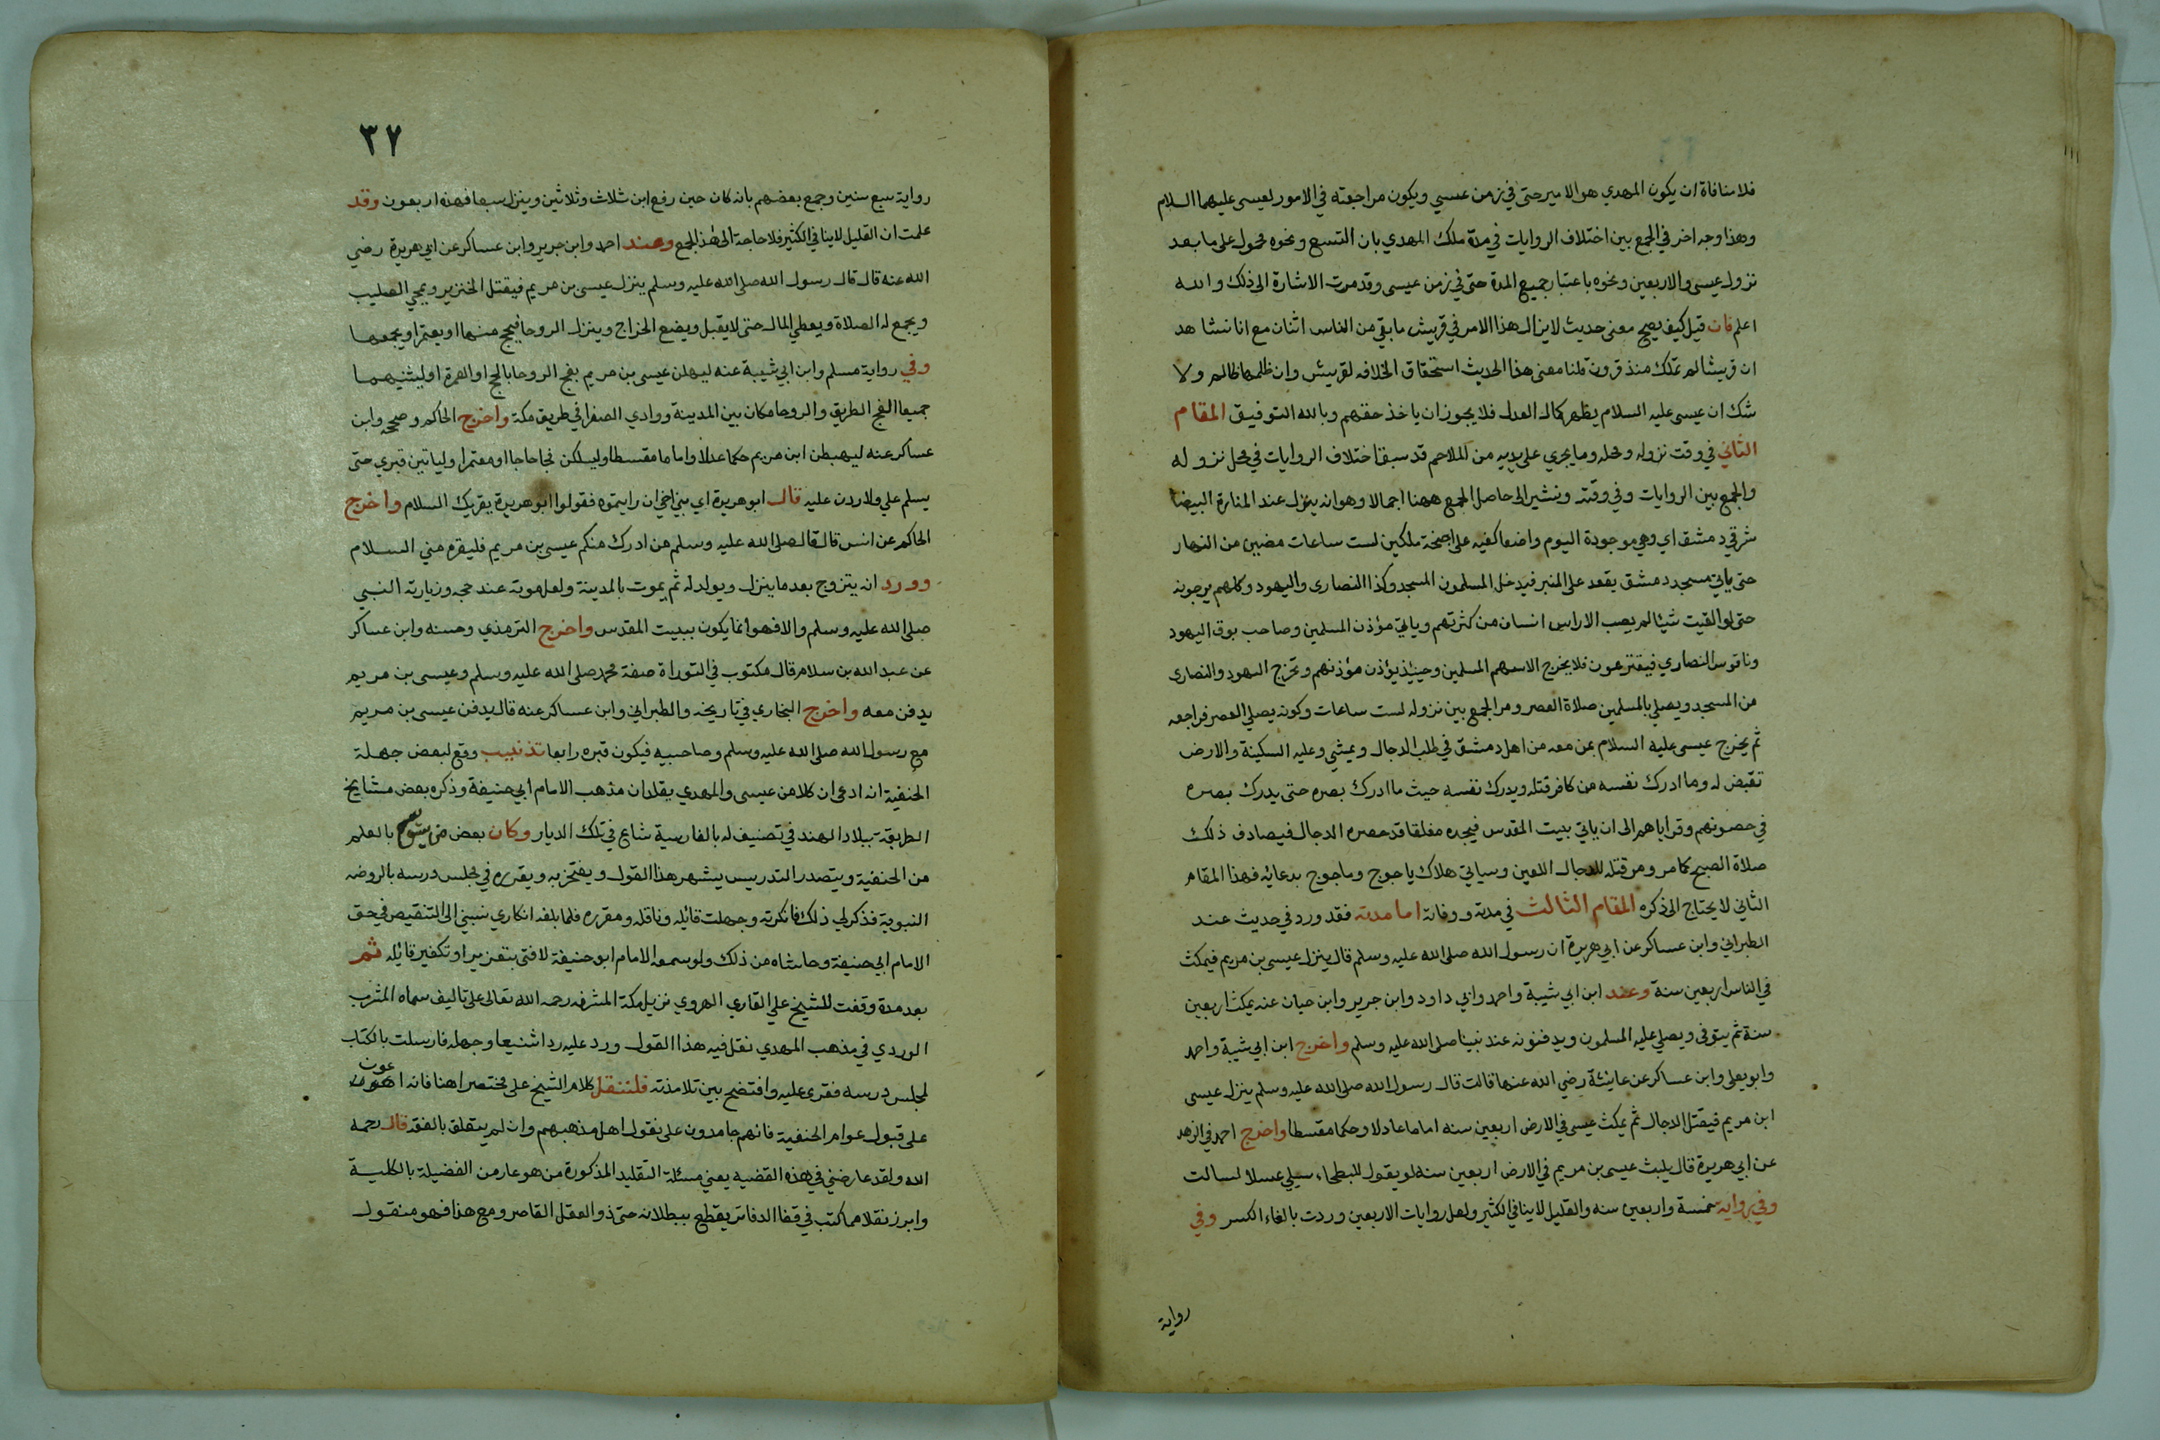 فلا منافاة ان يكون المهدي هو الامير حتى في زمن عيسي ويكون مراجعته في الامور لعيسى عليهما السلام
وهذا وجه اخر في الجمع بين اختلاف الروايات في مدة ملك المهدي بان التسع ونحوه محمول على ما بعد
نزول عيسى والاربعين ونحوه باعتبار جميع المدة حتى في زمن عيسى وقد مرت الاشارة الى ذلك والله
اعلم فان قيل كيف يصح معنى حديث لا يزال هذا الامر في قريش ما بقي من الناس اثنان مع انا نشاهد
ان قريشا لم تملك منذ قرون قلنا معنى هذا الحديث استحقاق الخلافه لقريش وان ظلمها ظالم ولا
شك ان عيسى عليه السلام يظهر كمال العدل فلا يجوز ان ياخذ حقهم وبالله التوفيق المقام
الثاني في وقت نزوله ومحله وما يجري على يديه من الملاحم قد سبق اختلاف الروايات في محل نزوله
والجمع بين الروايات وفي وقته ونشير الى حاصل الجمع ههنا اجمالا وهو انه ينزل عند المنارة البيضا
شرقي دمشق اي وهي موجودة اليوم واضعا كفيه على اجنحة ملكين لست ساعات مضين من النهار
حتى ياتي مسجد دمشق يقعد على المنبر فيدخل المسلمون المسجد وكذا النصارى واليهود وكلهم يرجونه
حتى لو القيت شيئا لم يصب الا راس انسان من كثرتهم وياتي مؤذن المسلمين وصاحب بوق اليهود
وناقوس النصاري فيقترعون فلا يخرج الا سهم المسلمين وحينئذ يؤذن مؤذنهم وتخرج اليهود والنصارى
من المسجد ويصلي بالمسلمين صلاة العصر ومر الجمع بين نزوله لست ساعات وكونه يصلي العصر فراجعه
ثم يخرج عيسى عليه السلام بمن معه من اهل دمشق في طلب الدجال ويمشي وعليه السكينة والارض
تقبض له وما ادرك نفسه من كافر قتله ويدرك نفسه حيث ما ادرك بصره حتى يدرك بصره
في حصونهم وقراياهم الى ان ياتي بيت المقدس فيجده مغلقا قد حصره الدجال فيصادف ذلك
صلاة الصبح كما مر ومر قتله للدجال اللعين وسياتي هلاك ياجوج وماجوج بدعائه فهذا المقام
الثاني لا يحتاج الى ذكره المقام الثالث في مدته ووفاته اما مدته فقد ورد في حديث عند
الطبراني وابن عساكر عن ابي هريرة ان رسول الله صلى الله عليه وسلم قال ينزل عيسى بن مريم فيمكث
في الناس اربعين سنة وعند ابن ابي شيبة واحمد وابي داود وابن جرير وابن حبان عنه يمكث اربعين
سنة ثم يتوفى ويصلي عليه المسلمون ويدفنونه عند نبينا صلى الله عليه وسلم واخرج ابن ابي شيبة واحمد
وابو يعلى وابن عساكر عن عايشة رضي الله عنها قالت قال رسول الله صلى الله عليه وسلم ينزل عيسى
ابن مريم فيقتل الدجال ثم يمكث عيسى في الارض اربعين سنه اماما عادلا وحكما مقسطا واخرج احمد في الزهد
عن ابي هريرة قال يلبث عيسى بن مريم في الارض اربعين سنه لو يقول للبطحاء سيلي عسلا لسالت
وفي رواية خمسة واربعين سنه والقليل لا ينافي الكثير ولعل روايات الاربعين وردت بالغاء الكسر وفي
رواية
٣٧
رواية سبع سنين وجمع بعضهم بانه كان حين رفع ابن ثلاث وثلاثين وينزل سبعا فهذه اربعون وقد
علمت ان القليل لا ينافي الكثير فلا حاجة الى هذا الجمع وعند احمد وابن جرير وابن عساكر عن ابي هريرة رضي
الله عنه قال قال رسول الله صلى الله عليه وسلم ينزل عيسى بن مريم فيقتل الخنزير ويمحي الصليب
ويجمع له الصلاة ويعطي المال حتى لا يقبل ويضع الخراج وينزل الروحا فيحج منها او يعتمر او يجمعهما
وفي رواية مسلم وابن ابي شيبة عنه ليهلن عيسى بن مريم بفج الروحا بالحج او العمرة او ليثنيهما
جميعا الفج الطريق والروحا مكان بين المدينة ووادي الصفرا في طريق مكة واخرج الحاكم وصححه وابن
عساكر عنه ليهبطن ابن مريم حكما عدلا واماما مقسطا وليسلكن فجا حاجا او معتمرا ولياتين قبري حتى
يسلم علي ولاردن عليه قال ابو هريرة اي بني اخي ان رايتموه فقولوا ابو هريرة يقريك السلام واخرج
الحاكم عن انس قال قال صلى الله عليه وسلم من ادرك منكم عيسى بن مريم فليقره مني السلام
وورد انه يتزوج بعد ما ينزل ويولد له ثم يموت بالمدينة ولعل موته عند حجه وزيارته النبي
صلى الله عليه وسلم والا فهو انما يكون ببيت المقدس واخرج الترمذي وحسنه وابن عساكر
عن عبد الله بن سلام قال مكتوب في التوراة صفة محمد صلى الله عليه وسلم وعيسى بن مريم
يدفن معه واخرج البخاري في تاريخه والطبراني وابن عساكر عنه قال يدفن عيسى بن مريم
مع رسول الله صلى الله عليه وسلم وصاحبيه فيكون قبره رابعا تذنيب وقع لبعض جهلة
الحنفية انه ادعى ان كلا من عيسى والمهدي يقلدان مذهب الامام ابي حنيفة وذكره بعض مشايخ
الطريقة ببلاد الهند في تصنيف له بالفارسية شاع في تلك الديار وكان بعض من يتوسم بالعلم
من الحنفية ويتصدر التدريس يشهر هذا القول ويفتخر به ويقرره في مجلس درسه بالروضه
النبوية فذكر لي ذلك فانكرته وجهلت قائله وناقله ومقرره فلما بلغه انكاري نسبني الى التنقيص في حق
الامام ابي حنيفة وحاشاه من ذلك ولو سمعه الامام ابو حنيفة لافتى بتعزير او تكفير قائله ثم
بعد مدة وقفت للشيخ علي القاري الهروي نزيل مكة المشرفه رحمه الله تعالى على تاليف سماه المشرب
الوردي في مذهب المهدي نقل فيه هذا القول ورد عليه ردا شنيعا وجهله فارسلت بالكتاب
لمجلس درسه فقرئ عليه وافتضح بين تلامذته فلننقل كلام الشيخ علي مختصرا هنا فانه اعون
على قبول عوام الحنفية فانهم جامدون على نقول اهل مذهبهم وان لم يتعلق بالفقه قال رحمه
الله ولقد عارضني في هذه القضيه يعني مسئلة التقليد المذكورة من هو عار من الفضيلة بالكلية
وابرز نقلا مما كتب في قفا الدفاتر يقطع ببطلانه حتى ذو العقل القاصر ومع هذا فهو منقول